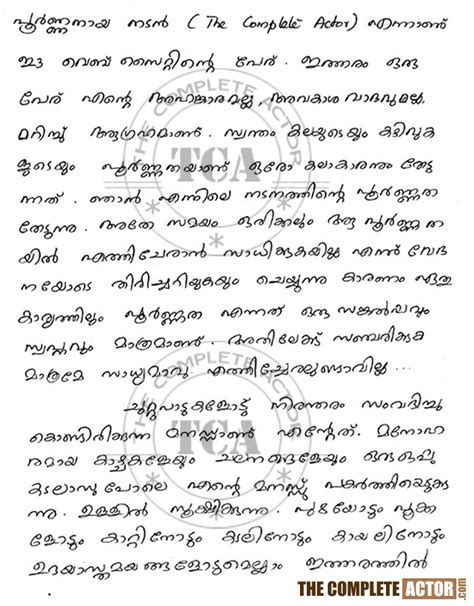 പൂർണ്ണനായ നടൻ (The Complete Actor) എന്നാണ്
ഈ വെബ് സൈറ്റിന്റെ പേര്. ഇത്തരം ഒരു
പേര് എന്റെ അഹങ്കാരമല്ല, അവകാശ വാദവുമല്ല.
മറിച്ച് ആഗ്രഹമാണ്. സ്വന്തം കലയുടെയും കഴിവുക
ളുടെയും പൂർണ്ണതയാണ് ഓരോ കലാകാരനും തേടു
ന്നത്. ഞാൻ എന്നിലെ നടനത്തിന്റെ പൂർണ്ണത
തേടുന്നു. അതേ സമയം ഒരിക്കലും ആ പൂർണ്ണത
യിൽ എത്തിച്ചേരാൻ സാധിക്കുകയില്ല എന്ന് വേദ
നയോടെ തിരിച്ചറിയുകയും ചെയ്യുന്നു കാരണം ഏതു
കാര്യത്തിലും പൂർണ്ണത എന്നത് ഒരു സങ്കൽപ്പവും
സ്വപ്നവും മാത്രമാണ്. അതിലേക്ക് സഞ്ചരിക്കുക
മാത്രമേ സാധ്യമാവൂ. എത്തിച്ചേരലുണ്ടാവില്ല ...
ചുറ്റുപാടുകളോട് നിരന്തരം സംവദിച്ചു
കൊണ്ടിരിക്കുന്ന മനസ്സാണ് എന്റേത്. മനോഹ
രമായ കാഴ്ചകളേയും ചലനങ്ങളേയും ഒരു ഒപ്പു
കടലാസു പോലെ എന്റെ മനസ്സ് പകർത്തിയെടുക്കു
ന്നു. ഉള്ളിൽ സൂക്ഷിക്കുന്നു. പുഴയോടും പൂക്ക
ളോടും കാറ്റിനോടും കടലിനോടും കായലിനോടും
ഉദയാസ്തമയങ്ങളോടുമെല്ലാം ഇത്തരത്തിൽ
THE COMPLETE ACTOR
TCA
THE COMPLETE ACTOR
TCA
THE COMPLETE ACTOR.com